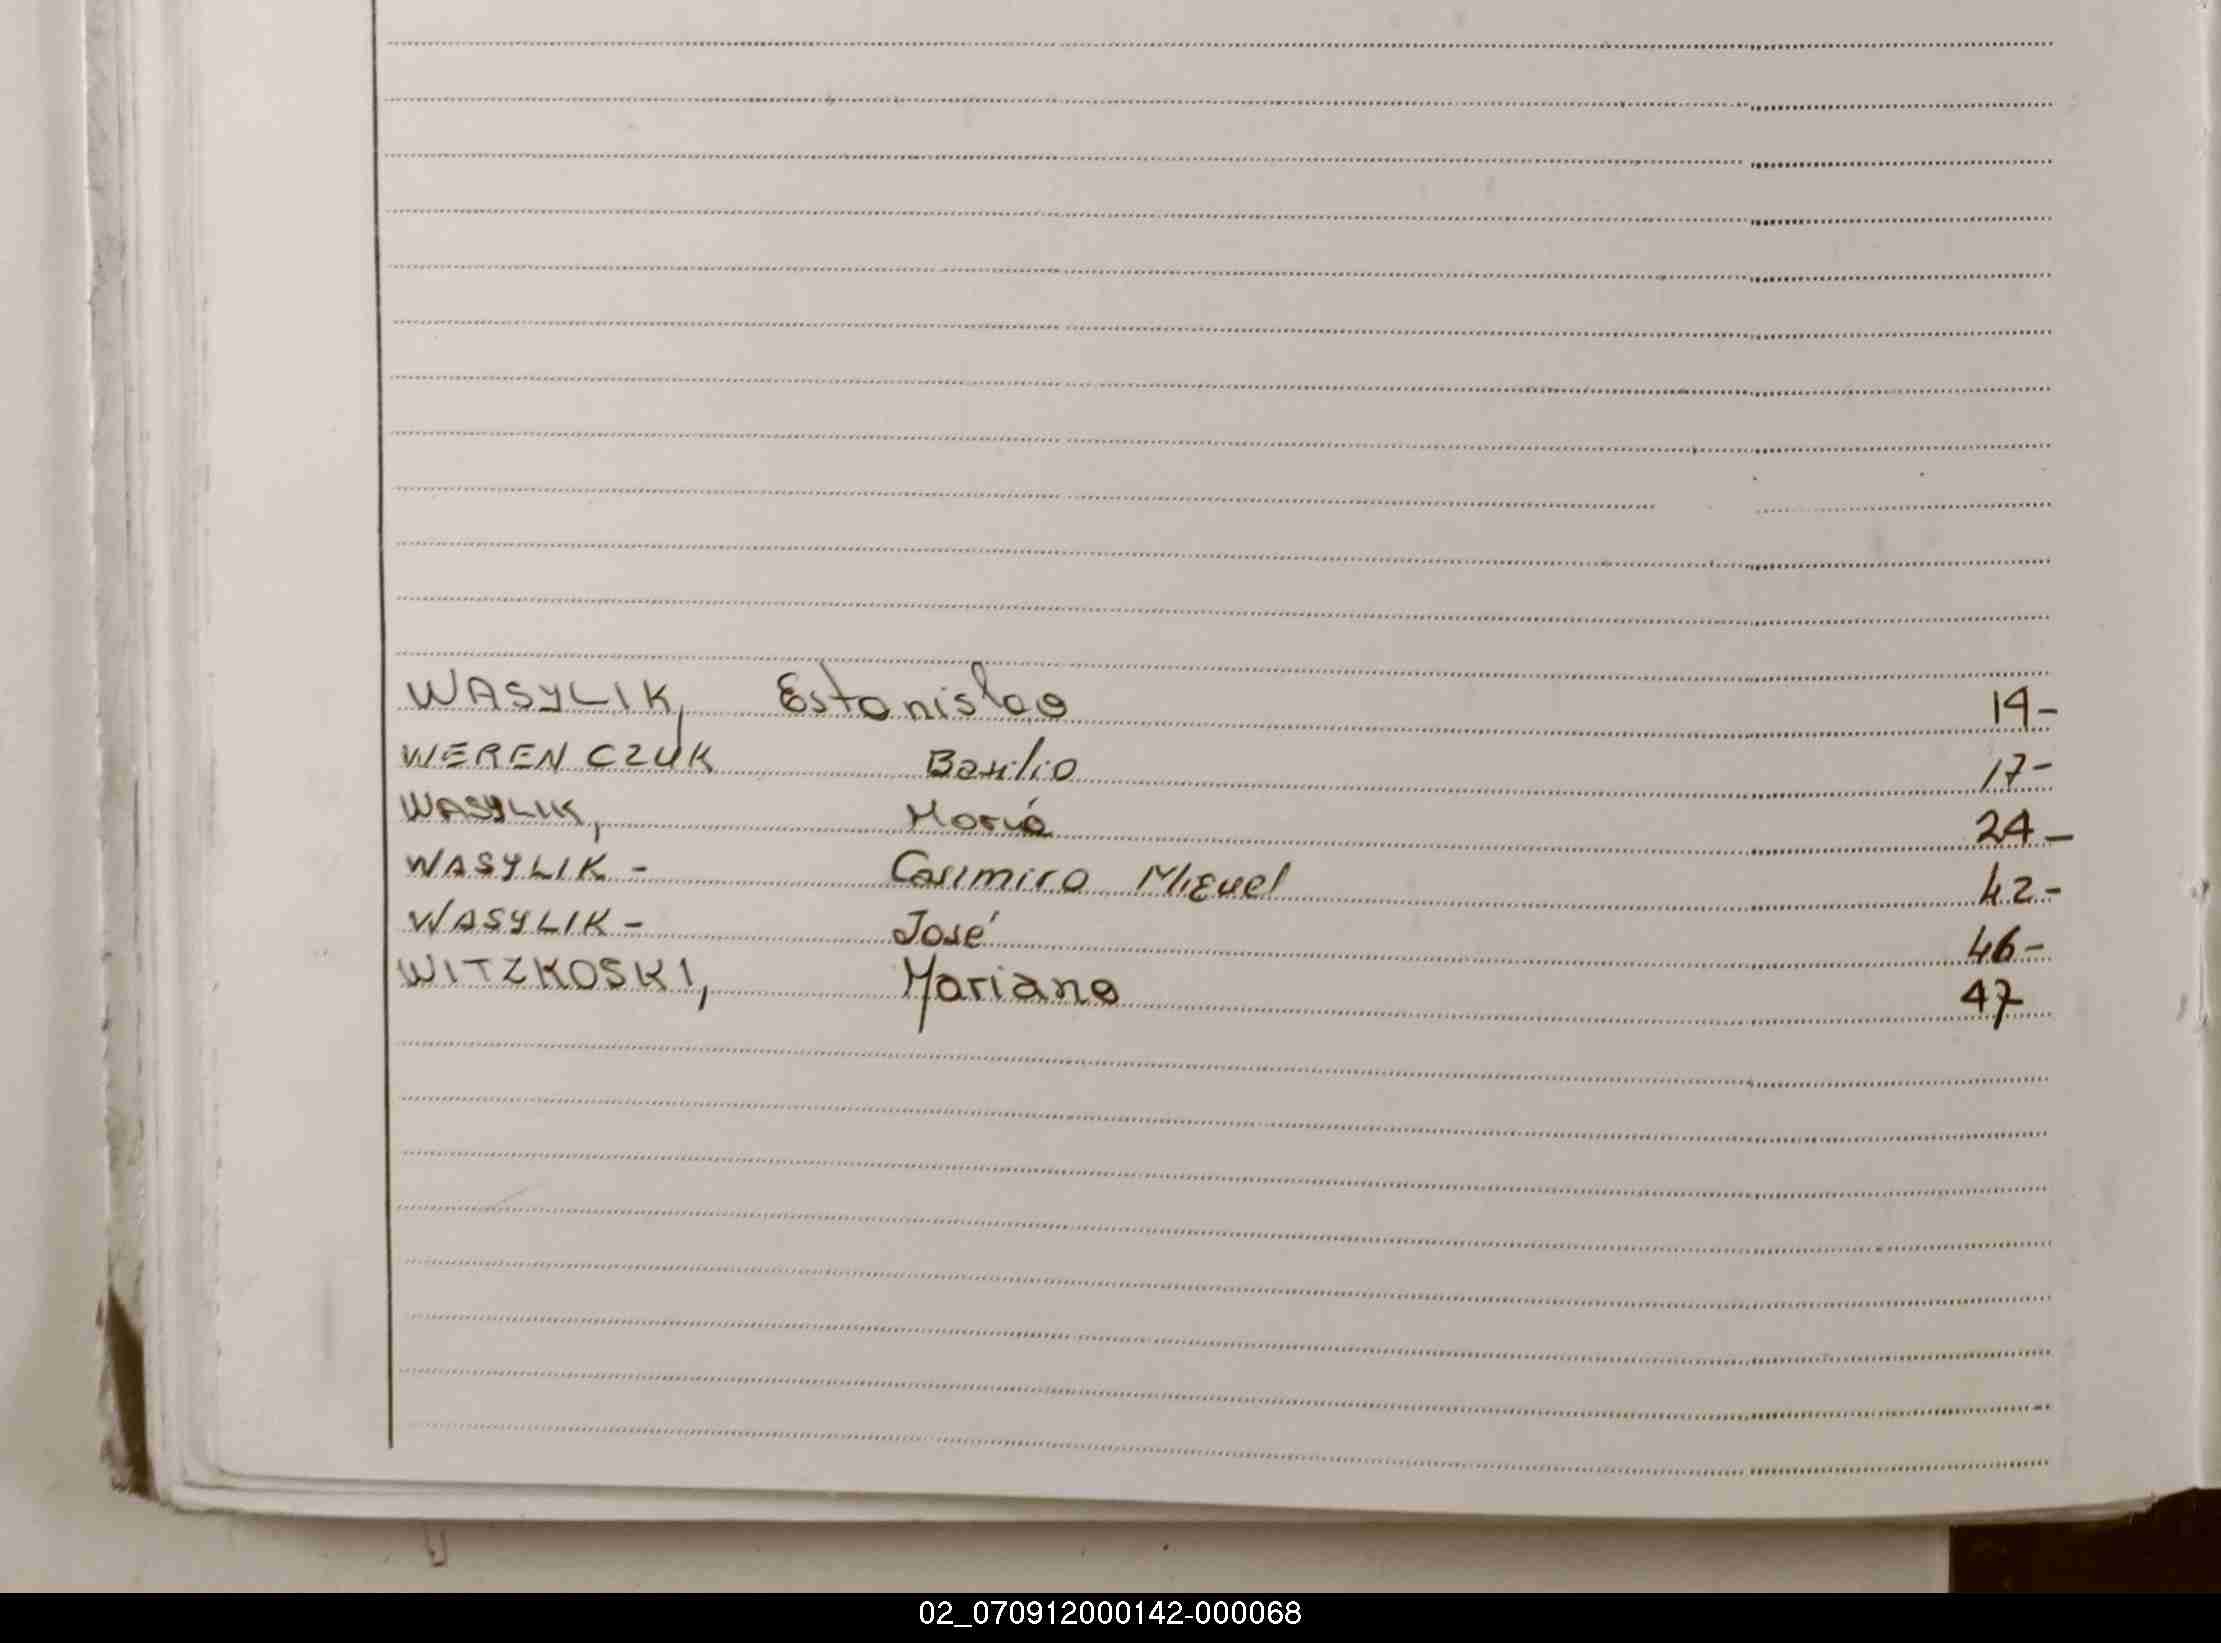 WASYLIK, Estanislao 19-
WERENCZUK Basilio 17-
WASYLIK, María 24-
WASYLIK- Casimiro Miguel 42-
WASYLIK- José 46-
WITZKOSKI, Mariano 47
02_070912000142-000068